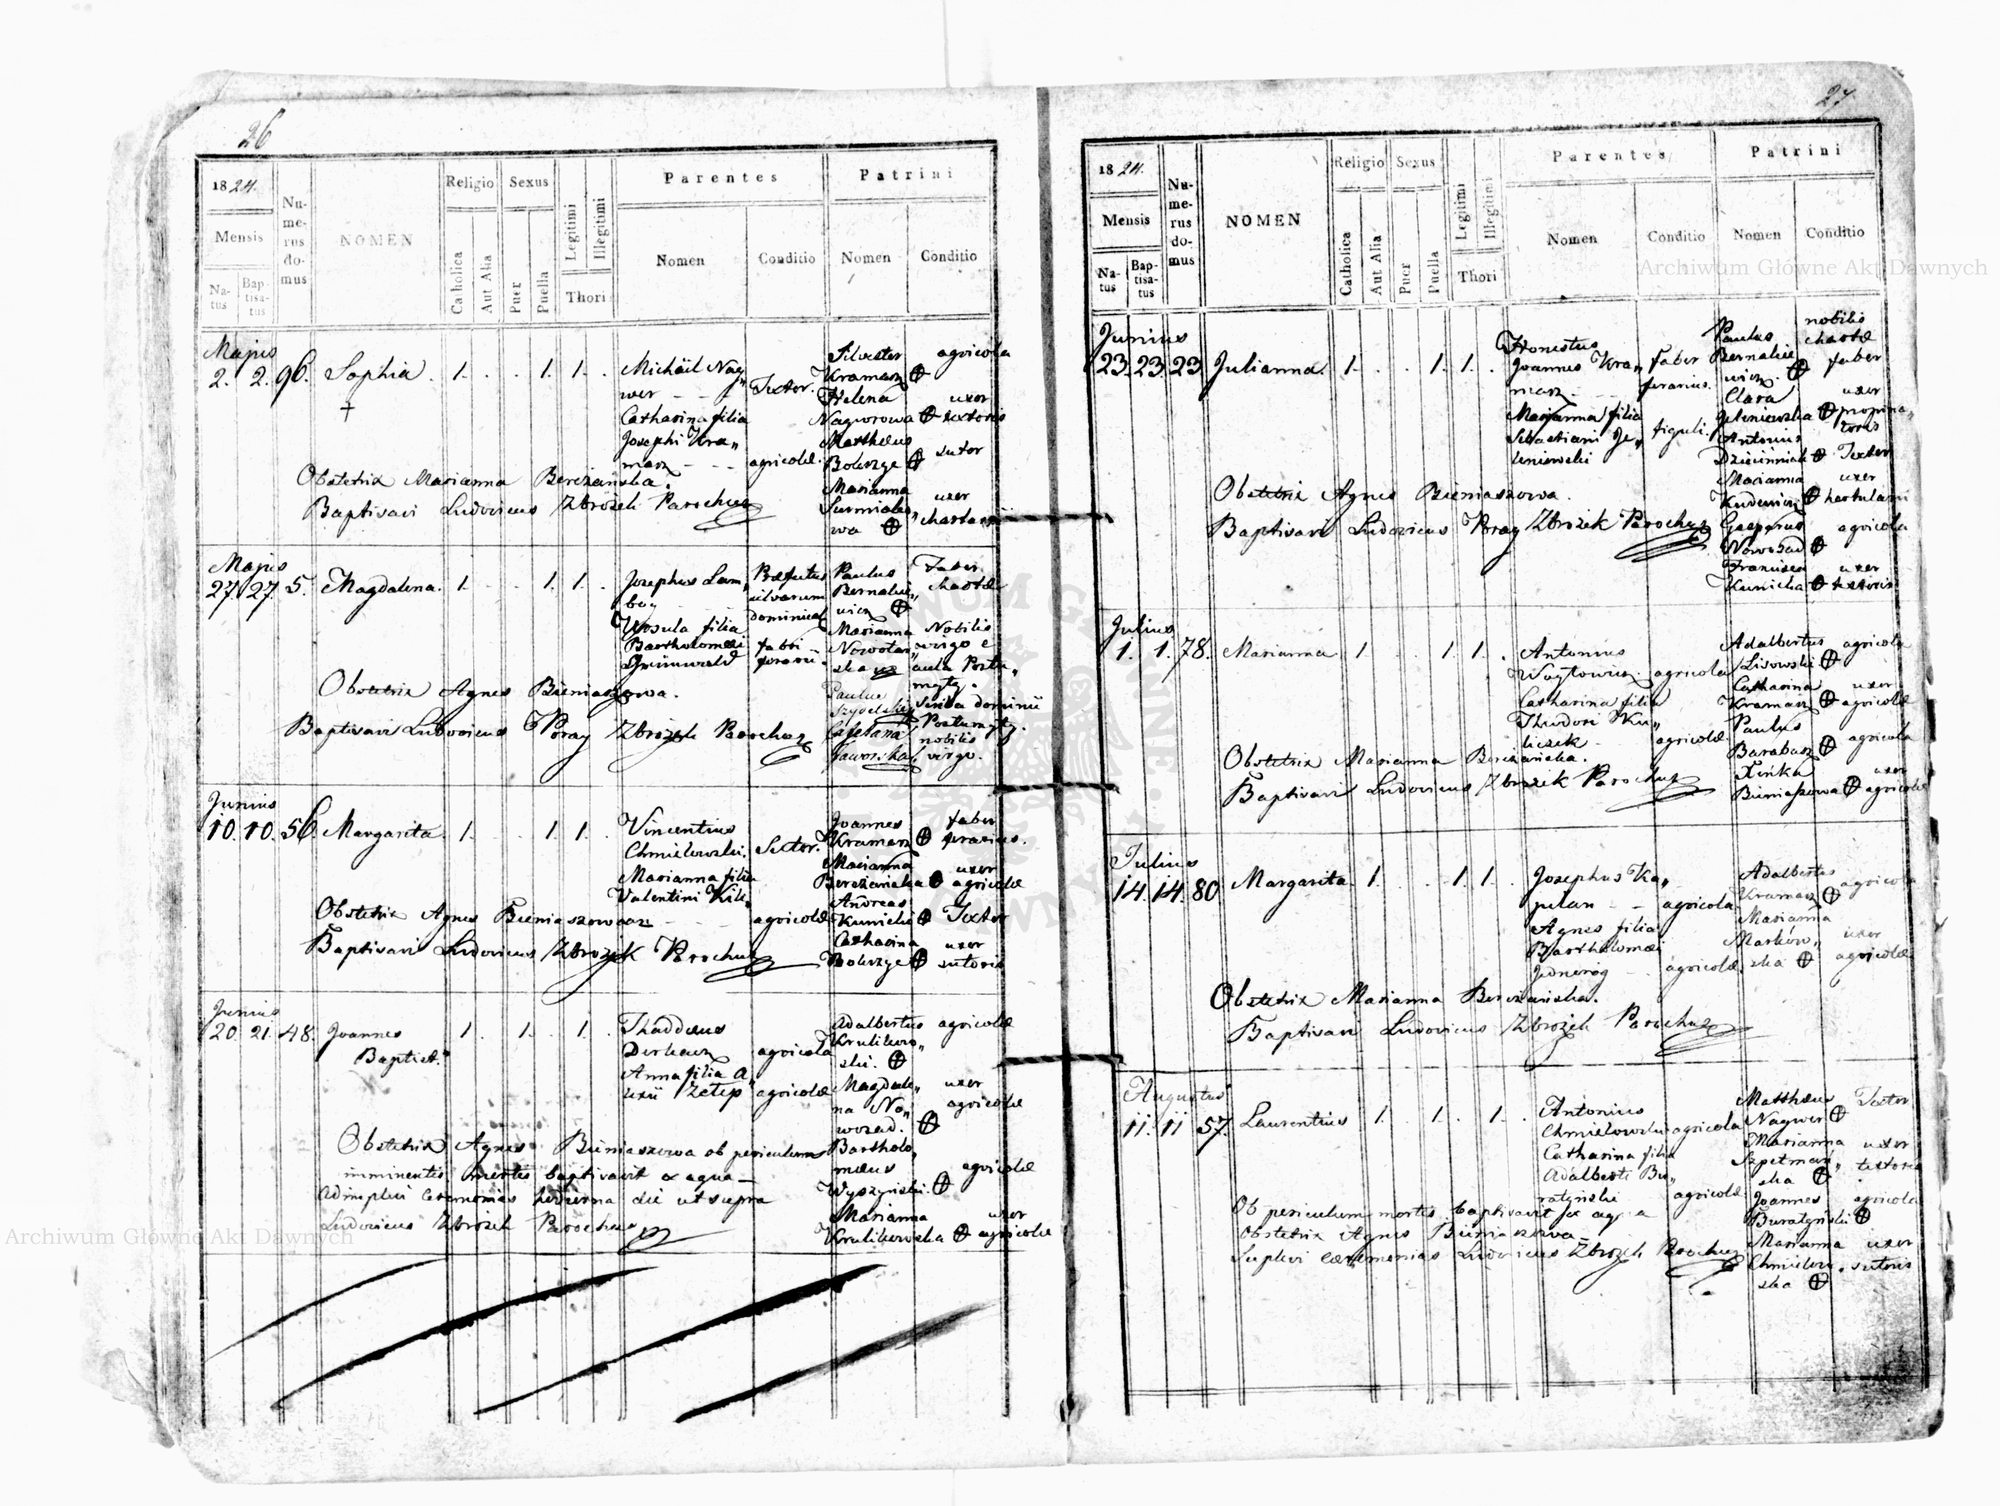 26
1824.
Mensis
Natus
Baptisatus
Numerus domus
NOMEN
Religio
Catholica
Aut Alia
Sexus
Puer
Puella
Legitimi
Illegitimi
Thori
Parentes
Nomen
Conditio
Patrini
Nomen
Conditio
Majus
2. 2. 96. Sophia. 1. 1. 1.
†
Michäil Nag„
wer
Textor.
Catharina filia
Josephi Kra„
marz
agricolæ.
Silvester agricola
Kramarz ⊕
Helena uxor
Nagworowa ⊕ textoris
Matthæus
Bolerzge ⊕ sutor
Marianna
uxor
wa ⊕
Obstetrix Marianna Bereżańska.
Baptisavi Ludovicus Zbrożek Parochus
Majus
27. 27. 5. Magdalena. 1. 1. 1.
Josephus Lam„
Præfectus
silvarum
dominical
Ursula filia
Bartholomæi
Grünwald
fabri
ferrarii
Paulus Faber
Bernakie„ chartæ
wicz ⊕
Marianna Nobilis
virgo e
aula
Paulus
Szydelski
dominii
Cajetana
nobilis
Jaworska virgo.
Obstetrix Agnes Bieniaszowa.
Baptisavi Ludovicus Poray Zbrożek Parochus
Junius
10. 10. 56. Margarita. 1. 1. 1.
Vincentius
Chmielowski.
Marianna filia
Valentini
agricolæ
Joannes faber
Kramarz ⊕ ferarius.
Marianna uxor
Bereżańska ⊕ agricolæ
Andreas
Kunicki ⊕ Textor
Catharina uxor
Bolerzge ⊕ sutoris
Obstetrix Agnes Bieniaszowa
Baptisavi Ludovicus Zbrożek Parochus
Junius
20. 21. 48. Joannes 1. 1. 1.
Baptist.
Thaddæus
Derkacz agricola
Anna filia A„
lexii agricolæ
Adalbertus agricolæ
Krulikow„
ski. ⊕
Magdale„ uxor
na No„ agricolæ
wosad. ⊕
Bartholo„
mæus agricolæ
Wyszyński. ⊕
Marianna uxor
Krulikowska ⊕ agricolæ
Obstetrix Agnes Bieniaszowa ob periculum
imminentis mortis baptisavit ex aqua —
Adimplevi ceremonias hodierna die ut supra
Ludovicus Zbrożek Parochus
27.
1824.
Mensis
Natus
Baptisatus
Numerus domus
NOMEN
Religio
Catholica
Aut Alia
Sexus
Puer
Puella
Legitimi
Illegitimi
Thori
Parentes
Nomen
Conditio
Patrini
Nomen
Conditio
Junius
23. 23. 23 Julianna. 1. 1. 1.
Honestus
Joannes Kra„ faber
marz ferarius.
Marianna filia
Sebastiani Je„ figuli.
leniewski
Paulus nobilis
Bernakie„ chartæ
wicz. ⊕ faber
Clara uxor
Jeleniewska ⊕ propina„
toris
Antonius
Dzieciniak ⊕ Textor
Marianna uxor
Kudewicz ⊕
Gasparus agricola
Nowosad ⊕
Francisca uxor
Kunicka ⊕ textoris
Obstetrix Agnes Bieniaszowa.
Baptisavi Ludovicus Poray Zbrożek Parochus
Julius
1. 1. 78. Marianna 1 1. 1.
Antonius
Woytowicz agricola
Catharina filia
Theodori Ku„
liczek agricolæ
Adalbertus agricola
Lisowski ⊕
Catharina uxor
Kramarz ⊕ agricolæ
Paulus
Barabasz ⊕ agricola
uxor
Bieniaszowa ⊕ agricolæ
Obstetrix Marianna Bereżańska.
Baptisavi Ludovicus Zbrożek Parochus
Julius
14. 14. 80 Margarita. 1. 1. 1.
Josephus Ka„
pelan agricola
Agnes filia
Bartholomæi
Jednorog agricolæ
Adalbertus agricola
Kramarz ⊕
Marianna
Markow„ uxor
ska ⊕ agricolæ
Obstetrix Marianna Bereżańska.
Baptisavi Ludovicus Zbrożek Parochus
Augustus
11. 11 57. Laurentius 1. 1. 1.
Antonius
Chmielowski agricola
Catharina filia
Adalberti Bu„
ratyński agricolæ
Matthæus Textor
Nagwer ⊕
Marianna uxor
Szpetmań„ textoris
ska ⊕
Joannes agricola
Buratyński ⊕
Marianna uxor
Chmielow„ sutoris
ska ⊕
Ob periculum mortis baptisavit ex aqua
Obstetrix Agnes Bieniaszowa —
Suplevi cæremonias Ludovicus Zbrożek Parochus
Archiwum Główne Akt Dawnych
Archiwum Główne Akt Dawnych